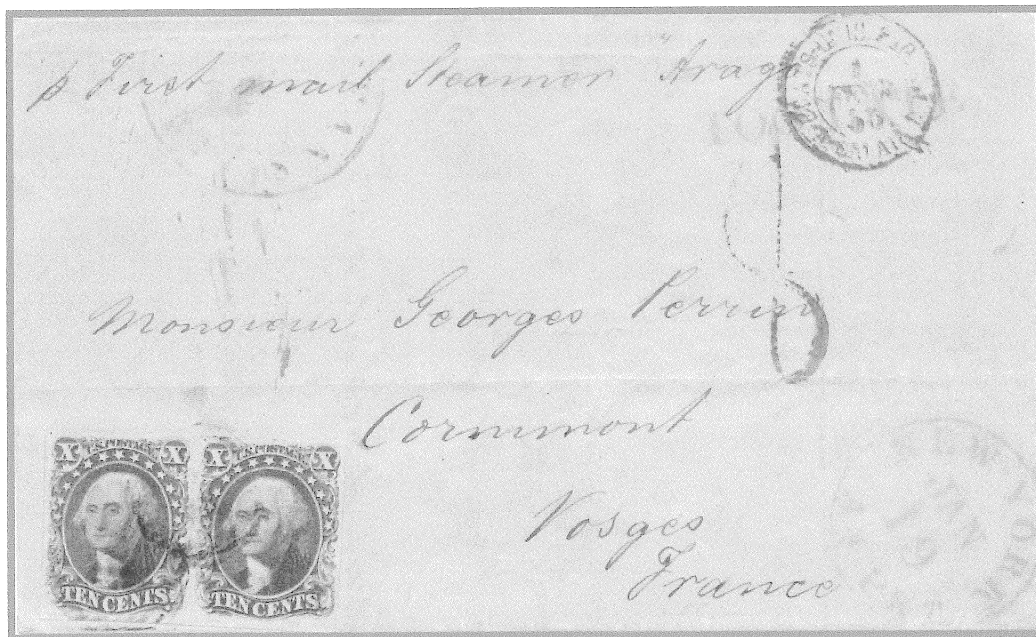 p First mail Steamer Arago
Monsieur Georges Perrin
Cornimont
Vosges
France
X U.S. POSTAGE X
TEN CENTS
X U.S. POSTAGE X
TEN CENTS
NEW YORK